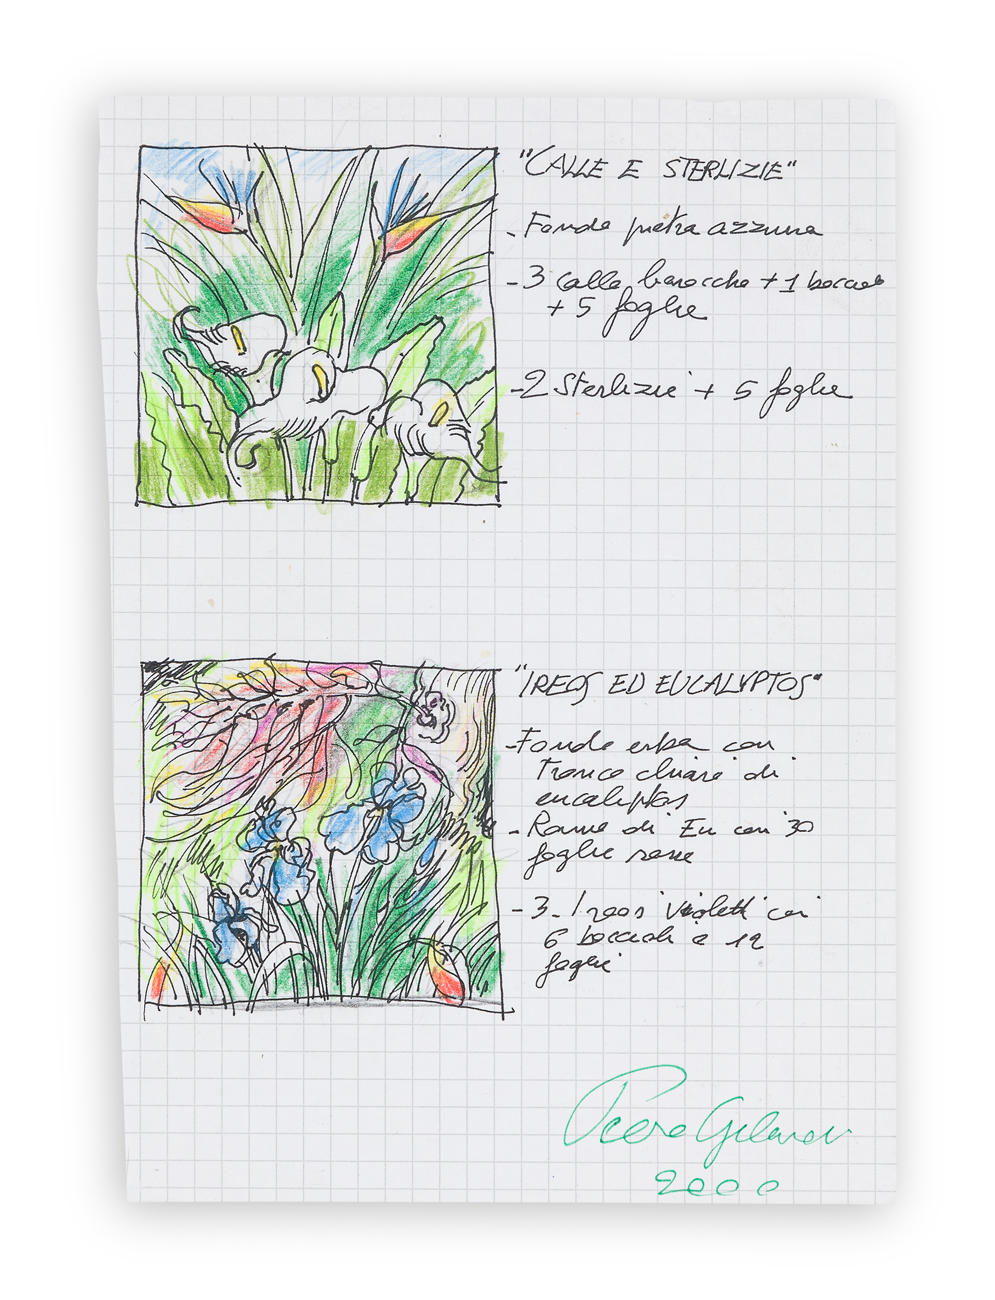 "CALLE E STERLIZIE"
- Fondo pietra azzurra
- 3 calle barocche + 1 boccio
+ 5 foglie
- 2 Sterlizie + 5 foglie
"IREOS ED EUCALYPTOS"
- Fondo erba con
tronco chiaro di
eucaliptos
- Rame di Eu con 30
foglie
- 3 Ireos violetti con
6 boccioli e 12
foglie
Piero Gilardi
2000